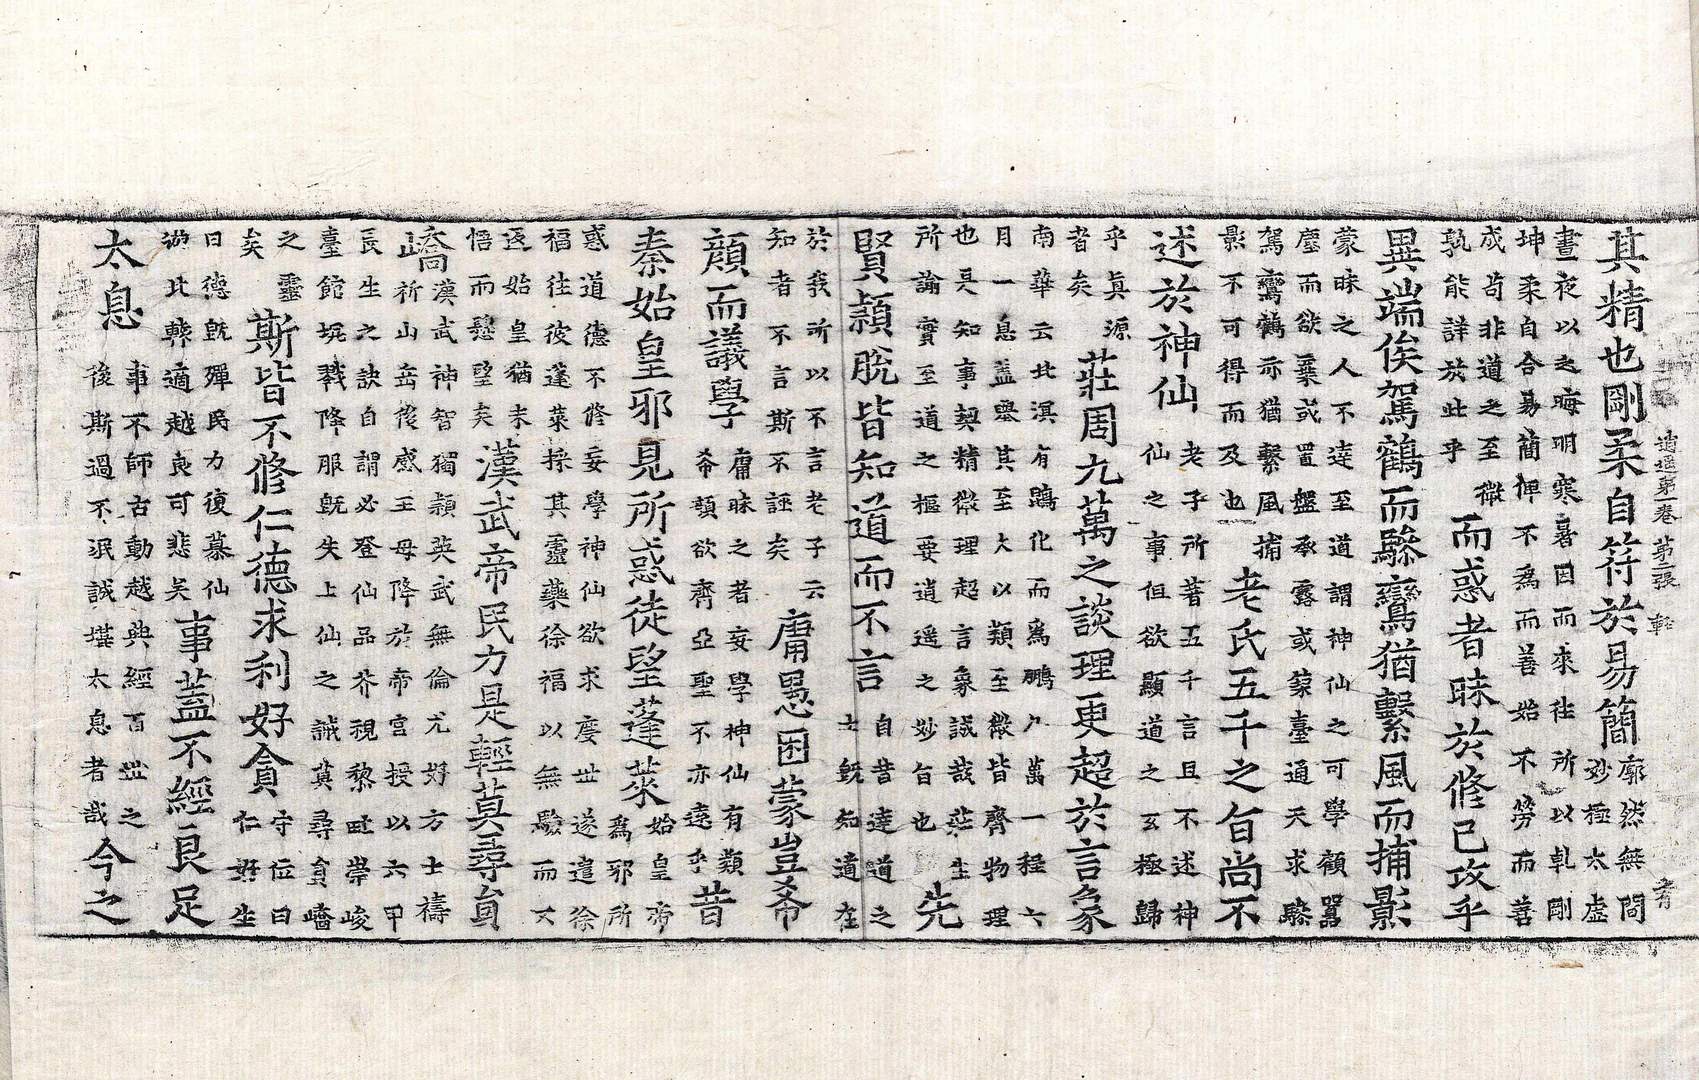 逍遥第一卷 第三張
其精也剛柔自符於易簡
廓然無間
妙極太虛
晝夜以之晦明寒暑因而來往所以乹剛
坤柔自合易簡俾不為而善始不勞而善
成苟非道之至微
孰能詳於此乎
而惑者昧於修己攻乎
異端俟駕鶴而驂鸞猶繫風而捕影
蒙昧之人不達至道謂神仙之可學顧嚣
塵而欲棄或置盤承露或築臺通天求驂
駕鸞鶴亦猶繫風捕
影不可得而及也
老氏五千之旨尚不
述於神仙
老子所著五千言且不述神
仙之事但欲顯道之玄極歸
乎真源
者矣
莊周九萬之談理更超於言象
南華云北溟有鵾化而為鵬九萬一程六
月一息蓋舉其至大以類至微皆齊物理
也是知事契精微理超言象誠哉莊生
所論實至道之樞要逍遥之妙旨也
先
賢頴脫皆知道而不言
自昔達道之
士既知道在
於我所以不言老子云
知者不言斯不誣矣
庸愚困蒙豈希
顔而議學
庸昧之者妄學神仙有類
希顔欲齊亞聖不亦遠乎
昔
秦始皇邪見所惑徒望蓬萊
始皇帝
為邪所
惑道德不修妄學神仙欲求度世遂遣徐
福往彼蓬萊採其靈藥徐福以無驗而不
返始皇猶未
悟而懸望矣
漢武帝民力是輕莫尋負
嶠
漢武神智獨頴英武無倫尤好方士禱
祈山岳後感王母降於帝宮授以六甲
長生之訣自謂必登仙品芥視黎甿崇峻
臺館戮降服既失上仙之誡莫尋負嶠
之靈
矣
斯皆不修仁德求利好貪
守位曰
仁好生
曰德既殫民力復慕仙
游北轅適越良可悲矣
事蓋不經良足
太息
事不師古動越典經百世之
後斯過不泯誠堪太息者哉
今之